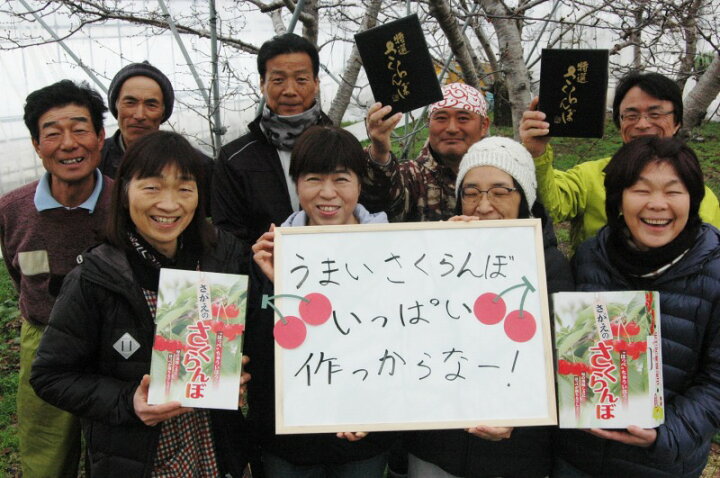 特選
さくらんぼ
特選
さくらんぼ
うまいさくらんぼ
いっぱい
作っからなー!
さかえの
さくらんぼ
さかえの
さくらんぼ